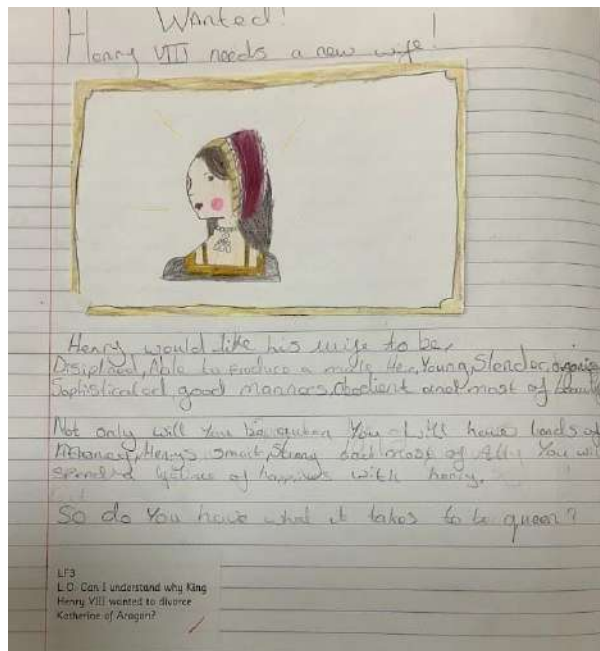 Wanted!
Henry VIII needs a new wife!
Henry would like his wife to be,
Disiplined, Able to produce a male Her, Young, Slender, organise
Sophisticated, good manners, Obedient and most of beauti
Not only will you be queen You will have loads of
Henrys smart, Strong most of All, You will
of happines with henry.
So do You have what it takes to be queen?
LF3
L.O. Can I understand why King
Henry VIII wanted to divorce
Katherine of Aragon?